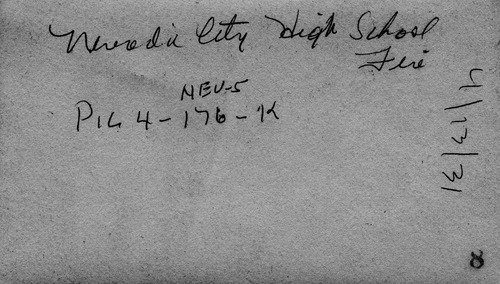 Nevada City High School
Fire
NEV-5
PIC 4-176-K
4/13/31
8